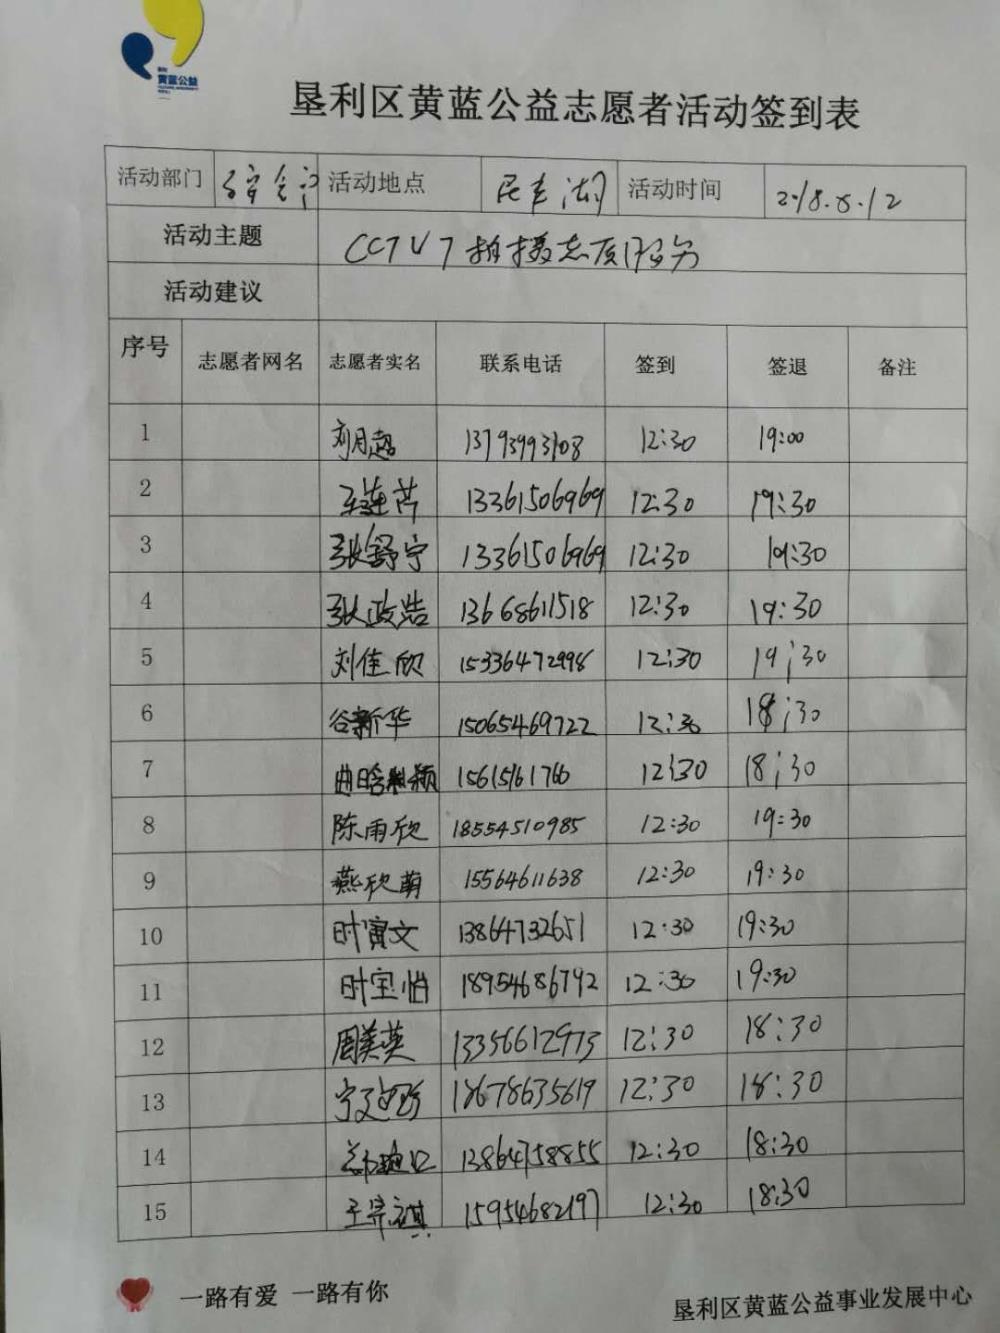 黄蓝公益
垦利区黄蓝公益志愿者活动签到表
活动部门 活动地点 民丰湖 活动时间 2018.8.12
活动主题 CCTV7拍摄志愿服务
活动建议
序号 志愿者网名 志愿者实名 联系电话 签到 签退 备注
1 刘月超 13793993108 12:30 19:00
2 王莲芹 13361506969 12:30 19:30
3 张舒宁 13361506969 12:30 19:30
4 张政浩 13668611518 12:30 19:30
5 刘佳欣 15336472998 12:30 19:30
6 谷新华 15065469722 12:30 18:30
7 15615161766 12:30 18:30
8 陈雨欣 18554510985 12:30 19:30
9 燕欣萌 15564611638 12:30 19:30
10 时寅文 13864732651 12:30 19:30
11 时宝怡 18954686792 12:30 19:30
12 周美英 13356612973 12:30 18:30
13 18678635619 12:30 18:30
14 13864758855 12:30 18:30
15 15954682197 12:30 18:30
一路有爱 一路有你
垦利区黄蓝公益事业发展中心